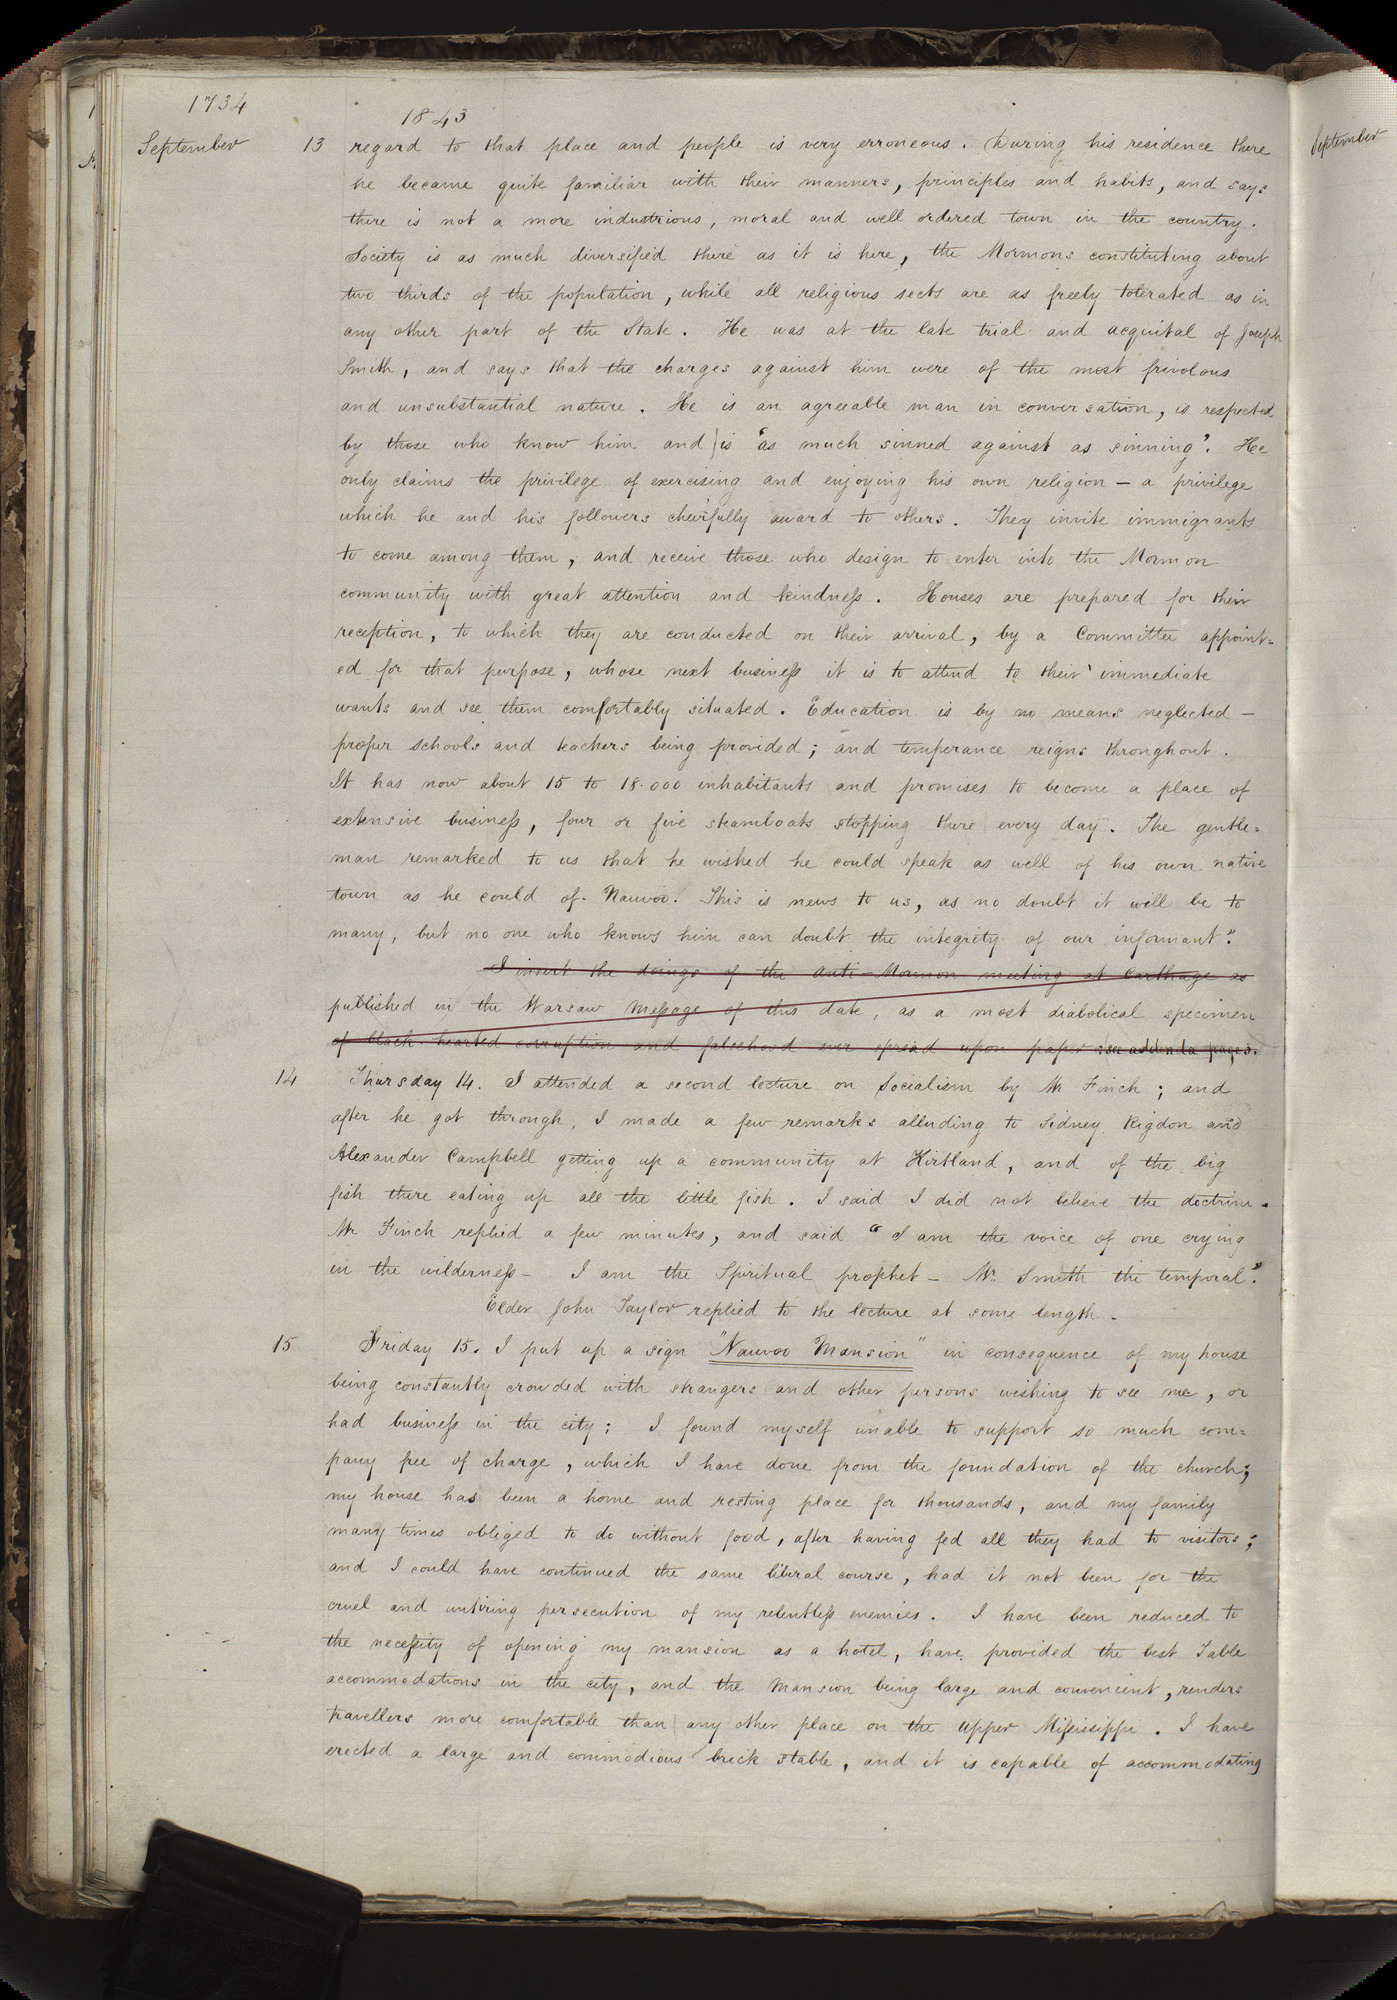 1734
1843
September 13 regard to that place and people is very erroneous. During his residence there
he became quite familiar with their manners, principles and habits, and says
there is not a more industrious, moral and well ordered town in the country.
Society is as much diversified there as it is here, the Mormons constituting about
two thirds of the population, while all religious sects are as freely tolerated as in
any other part of the State. He was at the late trial and acquital of Joseph
Smith, and says that the charges against him were of the most frivolous
and unsubstantial nature. He is an agreeable man in conversation, is respected
by those who know him and is "as much sinned against as sinning". He
only claims the privilege of exercising and enjoying his own religion — a privilege
which he and his followers cheirfully award to others. They invite immigrants
to come among them, and receive those who design to enter into the Mormon
community with great attention and kindness. Houses are prepared for their
reception, to which they are conducted on their arrival, by a Committee appoint=
ed for that purpose, whose next business it is to attend to their immediate
wants and see them comfortably situated. Education is by no means neglected —
proper schools and teachers being provided; and temperance reigns throughout.
It has now about 15 to 18.000 inhabitants and promises to become a place of
extensive business, four or five steamboats stopping there every day. The gentle=
man remarked to us that he wished he could speak as well of his own native
town as he could of Nauvoo. This is news to us, as no doubt it will be to
many, but no one who knows him can doubt the integrity of our informant."
I insert the doings of the Anti-Mormon meeting at Carthage as
published in the Warsaw Message of this date, as a most diabolical specimen
of black hearted corruption and falsehood ever spread upon paper: see addenda page 3.
14 Thursday 14. I attended a second lecture on Socialism by Mr Finch; and
after he got through, I made a few remarks alluding to Sidney Rigdon and
Alexander Campbell getting up a community at Kirtland, and of the big
fish there eating up all the little fish. I said I did not believe the doctrine.
Mr Finch replied a few minutes, and said "I am the voice of one crying
in the wilderness — I am the Spiritual prophet — Mr. Smith the temporal."
Elder John Taylor replied to the lecture at some length.
15 Friday 15. I put up a sign "Nauvoo Mansion" in consequence of my house
being constantly crowded with strangers and other persons wishing to see me, or
had business in the city; I found myself unable to support so much com=
pany free of charge, which I have done from the foundation of the church;
my house has been a home and resting place for thousands, and my family
many times obliged to do without food, after having fed all they had to visitors;
and I could have continued the same liberal course, had it not been for the
cruel and untiring persecution of my relentless enemies. I have been reduced to
the necessity of opening my mansion as a hotel, have provided the best Table
accommodations in the city, and the Mansion being large and convenient, renders
travellers more comfortable than any other place on the Upper Mississippi. I have
erected a large and commodious brick stable, and it is capable of accommodating
September